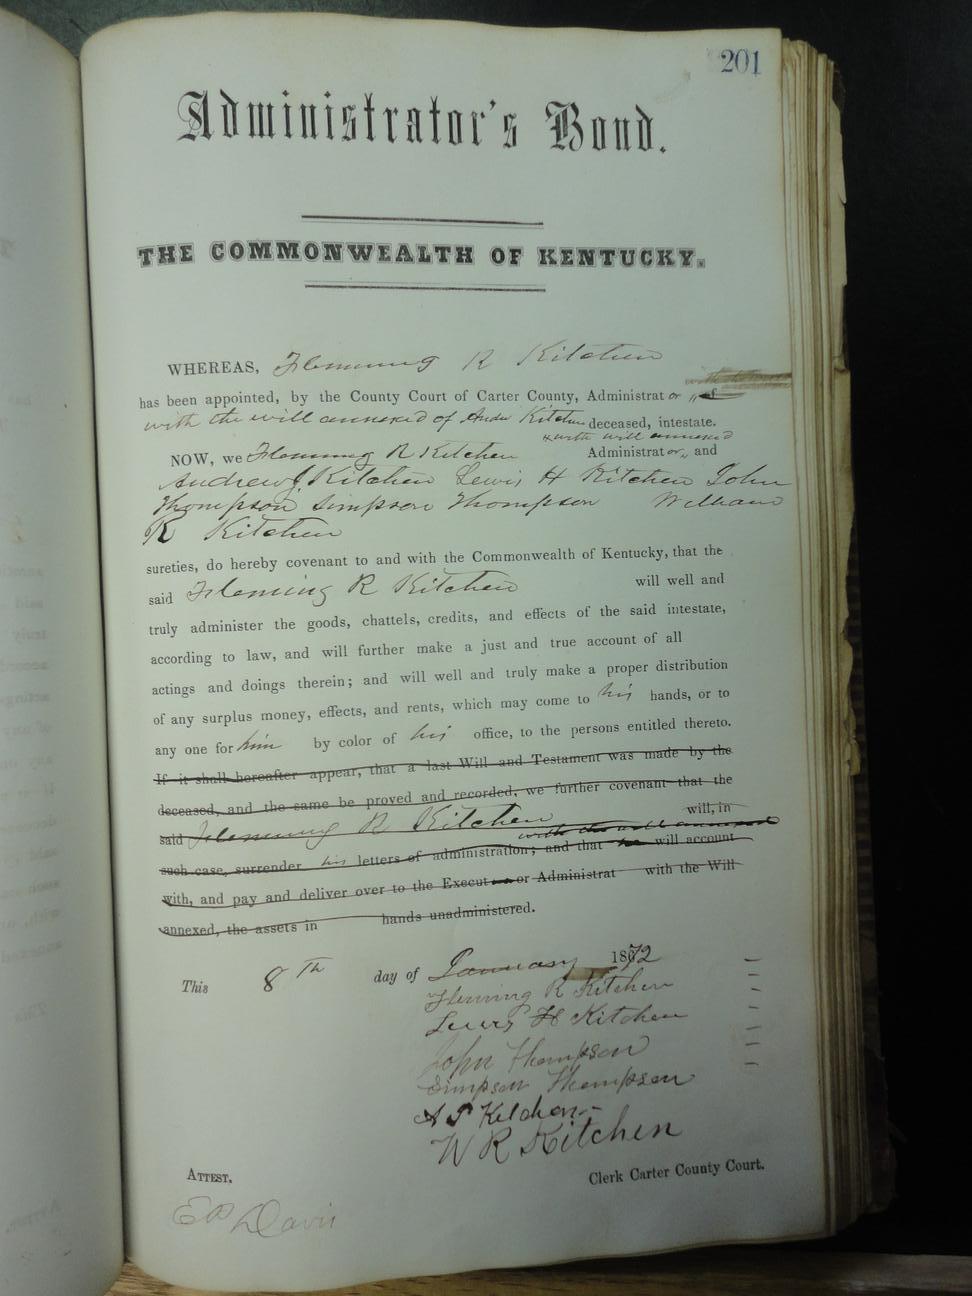 201
Administrator's Bond.
THE COMMONWEALTH OF KENTUCKY.
WHEREAS, Flemming R Kitchen
has been appointed, by the County Court of Carter County, Administrator of
with the will annexed of Andw Kitchen deceased, intestate.
with will annexed
NOW, we Flemming R Kitchen Administrator, and
Andrew J Kitchen Lewis H Kitchen John
Thompson Simpson Thompson William
R Kitchen
sureties, do hereby covenant to and with the Commonwealth of Kentucky, that the
said Fleming R Kitchen will well and
truly administer the goods, chattels, credits, and effects of the said intestate,
according to law, and will further make a just and true account of all
actings and doings therein; and will well and truly make a proper distribution
of any surplus money, effects, and rents, which may come to his hands, or to
any one for him by color of his office, to the persons entitled thereto.
If it shall hereafter appear, that a last Will and Testament was made by the
deceased, and the same be proved and recorded, we further covenant that the
said Flemming R Kitchen will, in
with the will annexed
such case, surrender his letters of administration; and that he will account
with, and pay and deliver over to the Execut or Administrat with the Will
annexed, the assets in hands unadministered.
This 8th day of January 1872
Fleming R Kitchen
Lewis H Kitchen
John Thompson
Simpson Thompson
A J Kitchen
W R Kitchen
ATTEST. Clerk Carter County Court.
Davis